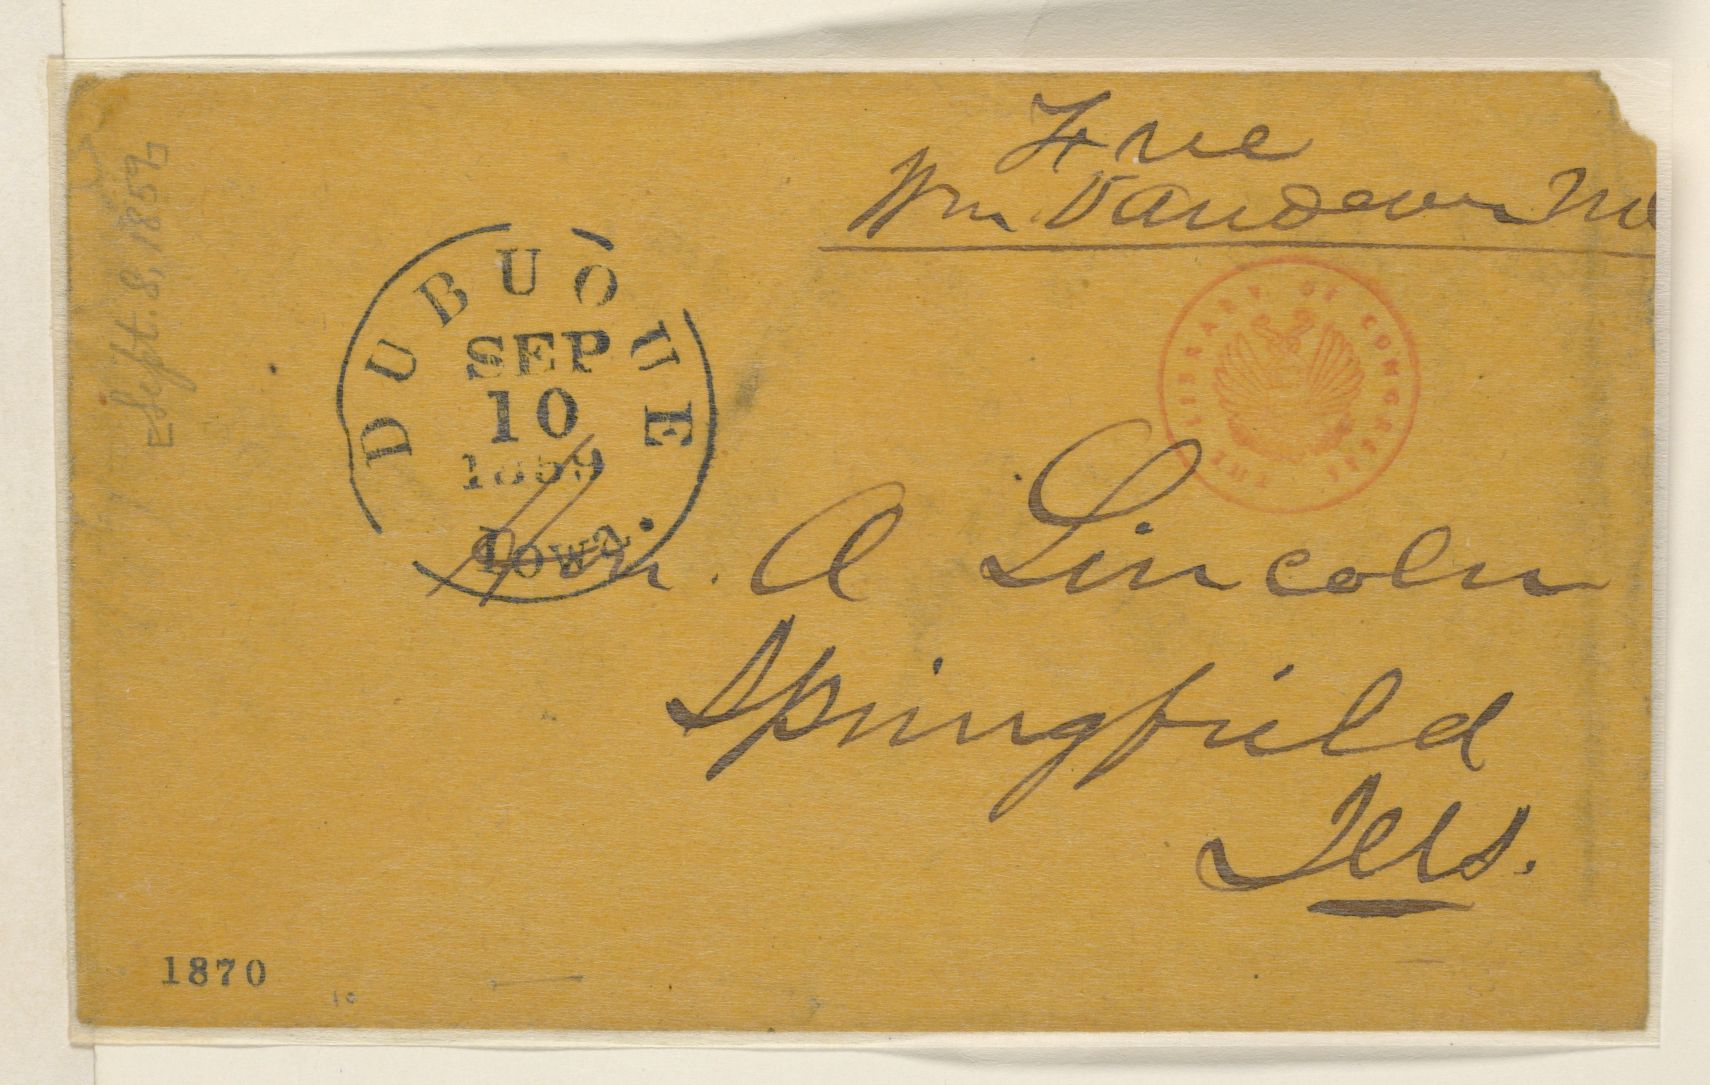 Free
Wm Vandever M
DUBUQUE
SEP
10
1859
Iowa.
THE LIBRARY OF CONGRESS
Hon. A Lincoln
Springfield
Ills.
[Sept. 8, 1859]
1870